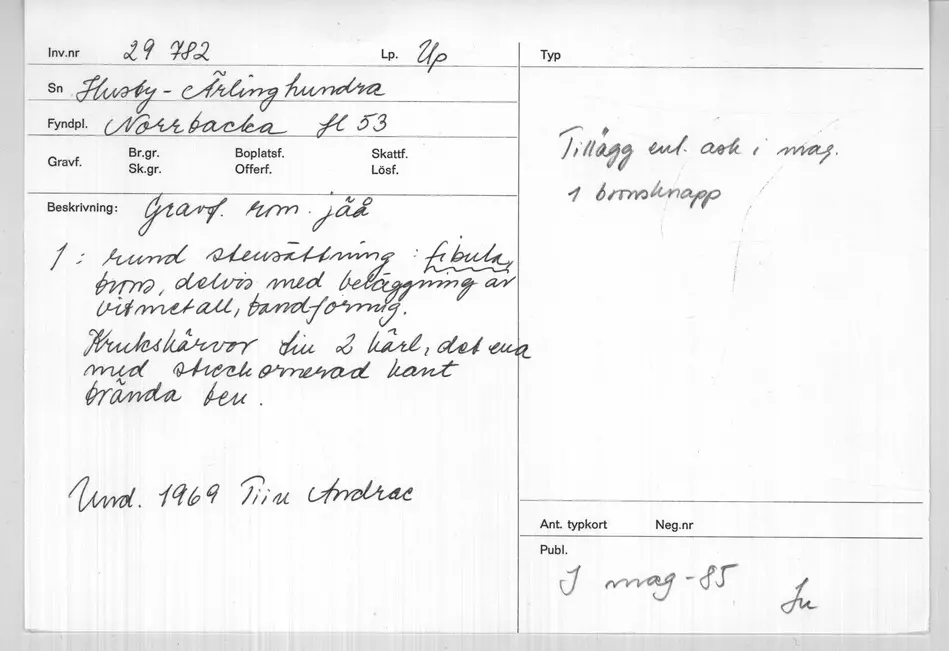 Inv.nr 29 782 Lp. Up
Sn Husby - Ärlinghundra
Fyndpl. Norrbacka fl 53
Gravf. Br.gr. Boplatsf. Skattf.
Sk.gr. Offerf. Lösf.
Beskrivning: Gravf. rom. jäå
1 : rund stensättning : fibula,
brons, delvis med beläggning av
vitmetall, bandformig.
Krukskärvor från 2 kärl, det ena
med streckornerad kant
brända ben.
Und. 1969 Tiiu Andrae
Typ
Tillägg enl. ask i mag.
1 bronsknapp
Ant. typkort Neg.nr
Publ.
I mag -85